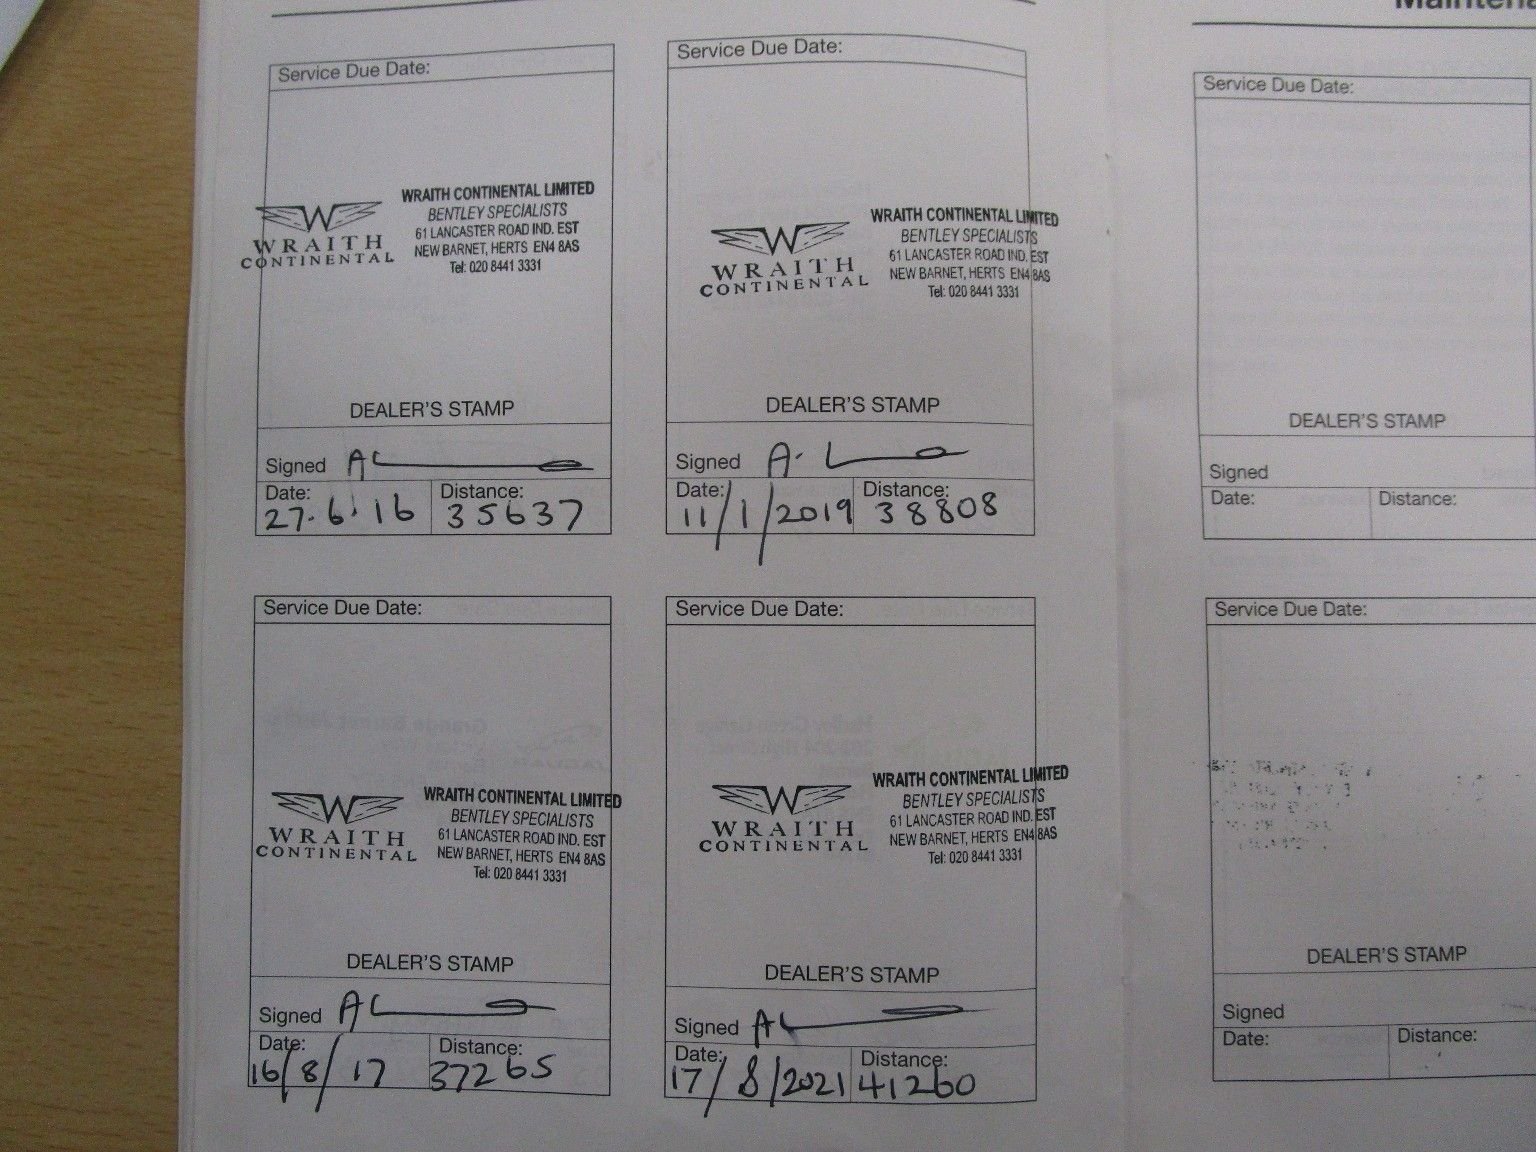 Service Due Date:
WRAITH CONTINENTAL LIMITED
BENTLEY SPECIALISTS
61 LANCASTER ROAD IND. EST
NEW BARNET, HERTS EN4 8AS
Tel: 020 8441 3331
W
WRAITH
CONTINENTAL
DEALER'S STAMP
Signed AL
Date: Distance:
27.6.16 35637
Service Due Date:
WRAITH CONTINENTAL LIMITED
BENTLEY SPECIALISTS
61 LANCASTER ROAD IND. EST
NEW BARNET, HERTS EN4 8AS
Tel: 020 8441 3331
W
WRAITH
CONTINENTAL
DEALER'S STAMP
Signed A. L
Date: Distance:
11/1/2019 38808
Service Due Date:
WRAITH CONTINENTAL LIMITED
BENTLEY SPECIALISTS
61 LANCASTER ROAD IND. EST
NEW BARNET, HERTS EN4 8AS
Tel: 020 8441 3331
W
WRAITH
CONTINENTAL
DEALER'S STAMP
Signed AL
Date: Distance:
16/8/17 37265
Service Due Date:
WRAITH CONTINENTAL LIMITED
BENTLEY SPECIALISTS
61 LANCASTER ROAD IND. EST
NEW BARNET, HERTS EN4 8AS
Tel: 020 8441 3331
W
WRAITH
CONTINENTAL
DEALER'S STAMP
Signed AL
Date: Distance:
17/8/2021 41260
Service Due Date:
DEALER'S STAMP
Signed
Date: Distance:
Service Due Date:
DEALER'S STAMP
Signed
Date: Distance: